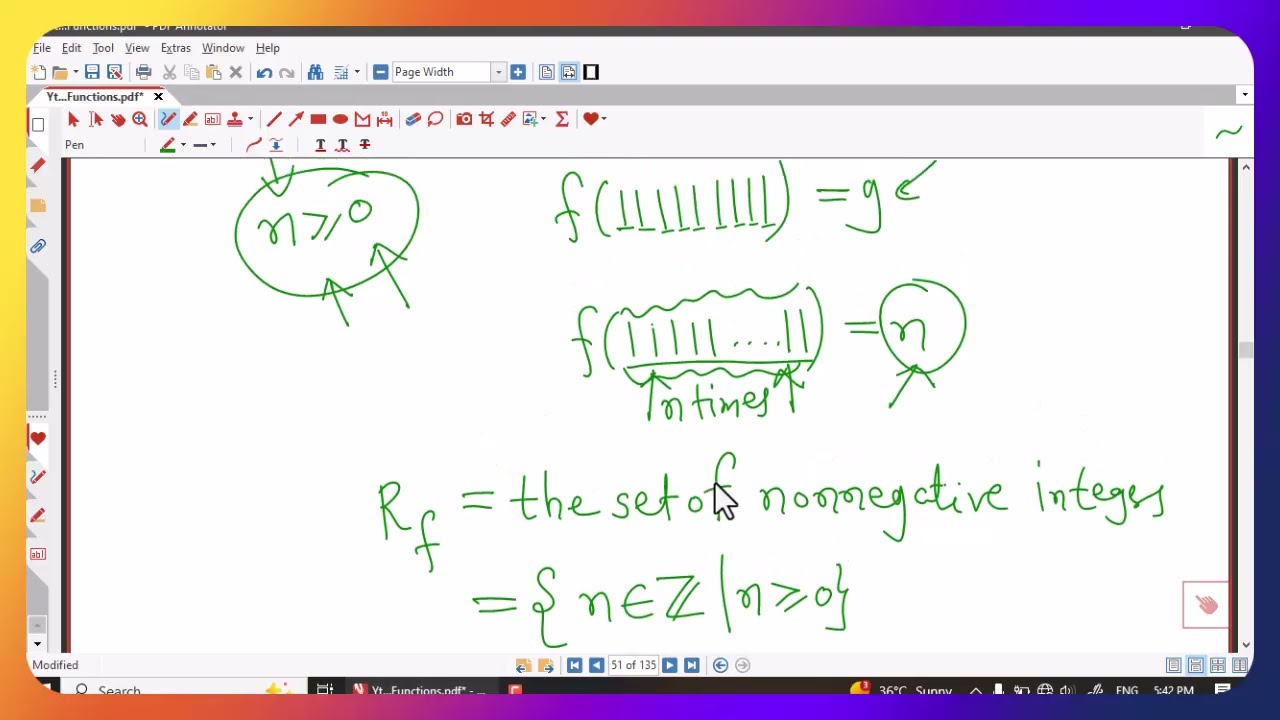 Functions.pdf* - PDF Annotator
File Edit Tool View Extras Window Help
Page Width
Yt...Functions.pdf*
Pen
n ≥ 0
f(1111111111) = g
f(11111....11) = n
n times
R_f = the set of nonnegative integs
= { n ∈ ℤ | n ≥ 0}
Modified
51 of 135
Search
Yt...Functions.pdf* - ...
36°C Sunny
ENG
5:42 PM